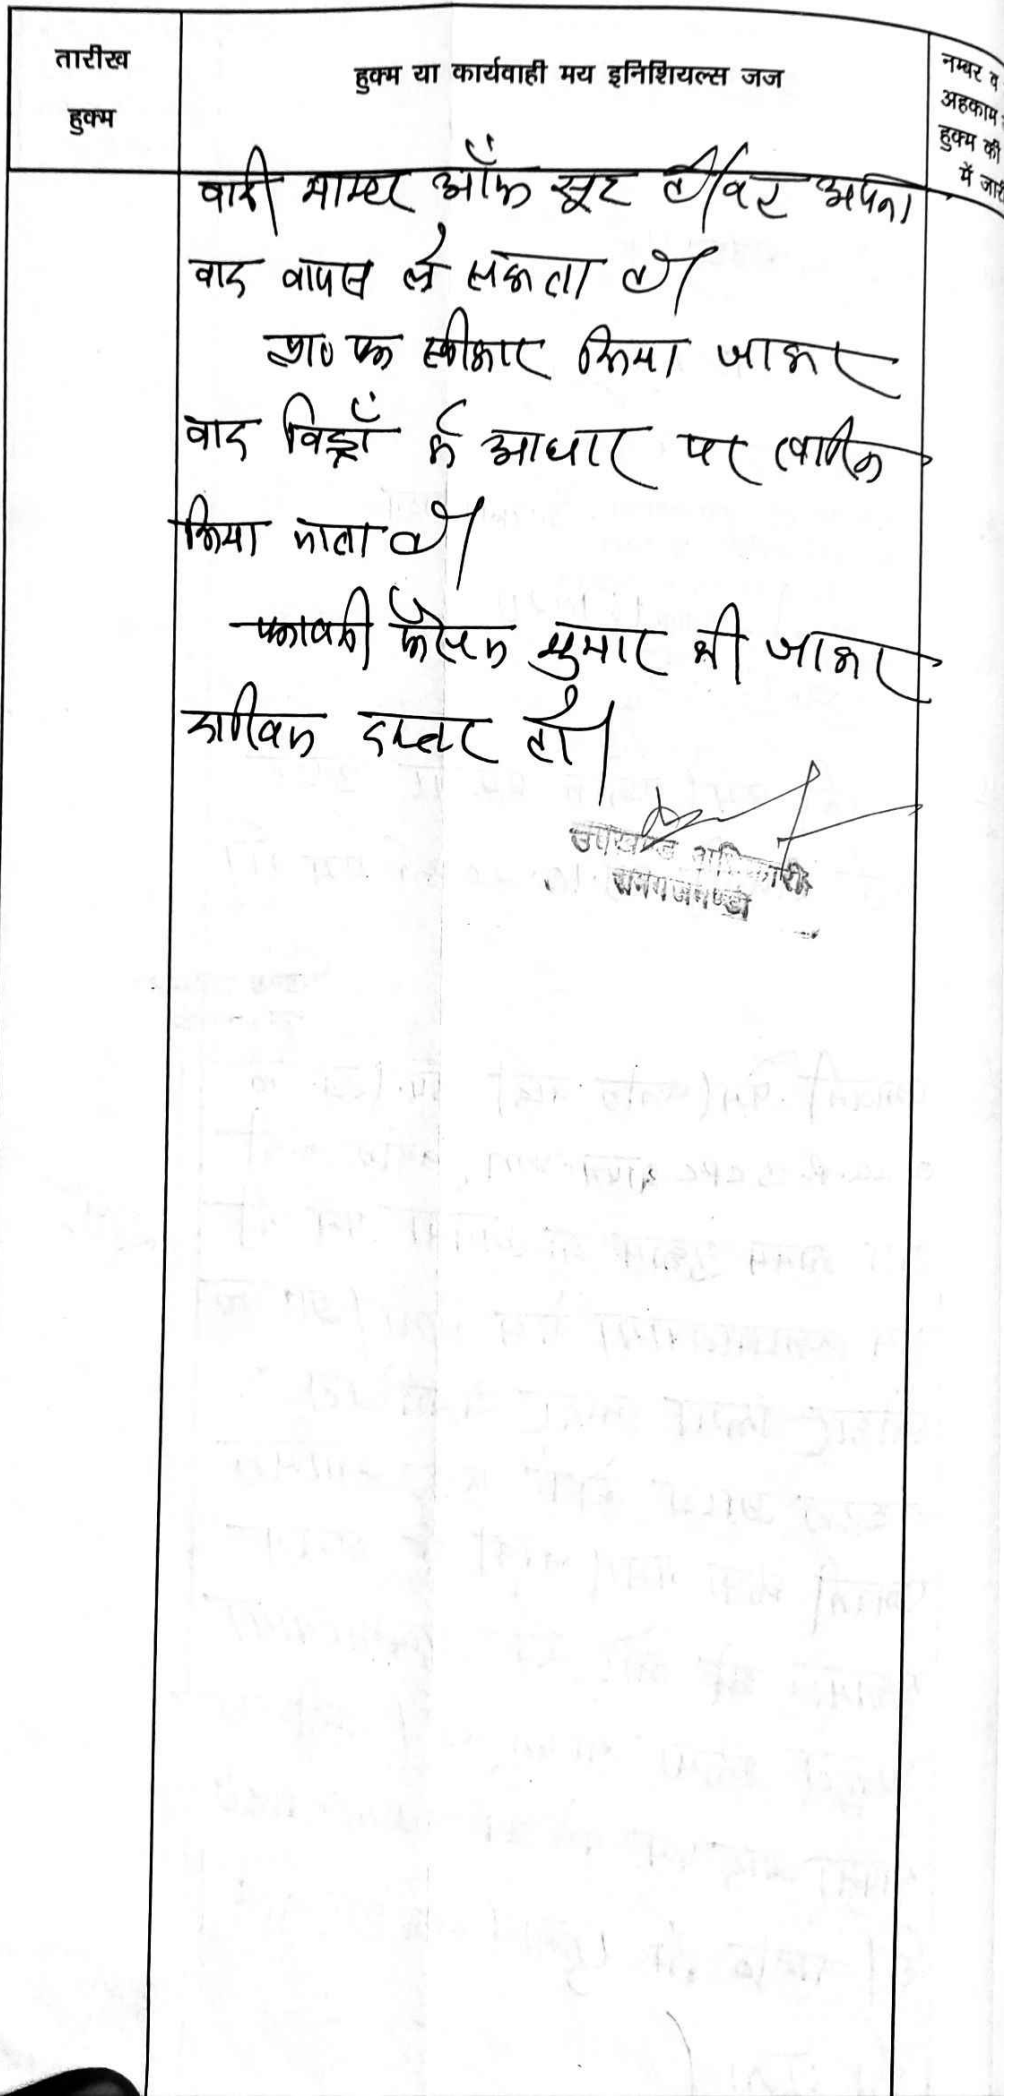 तारीख
हुक्म
हुक्म या कार्यवाही मय इनिशियल्स जज
नम्बर व
अहकाम
हुक्म की
में जारी
वादी मास्टर ऑफ सूट होकर अपना
वाद वापस ले सकता है।
प्रा० पत्र स्वीकार किया जाकर
वाद विड्रॉ के आधार पर खारिज
किया जाता है।
पत्रावली फैसल शुमार की जाकर
दाखिल दफ्तर हो।
उपखण्ड अधिकारी
रामगंजमण्डी